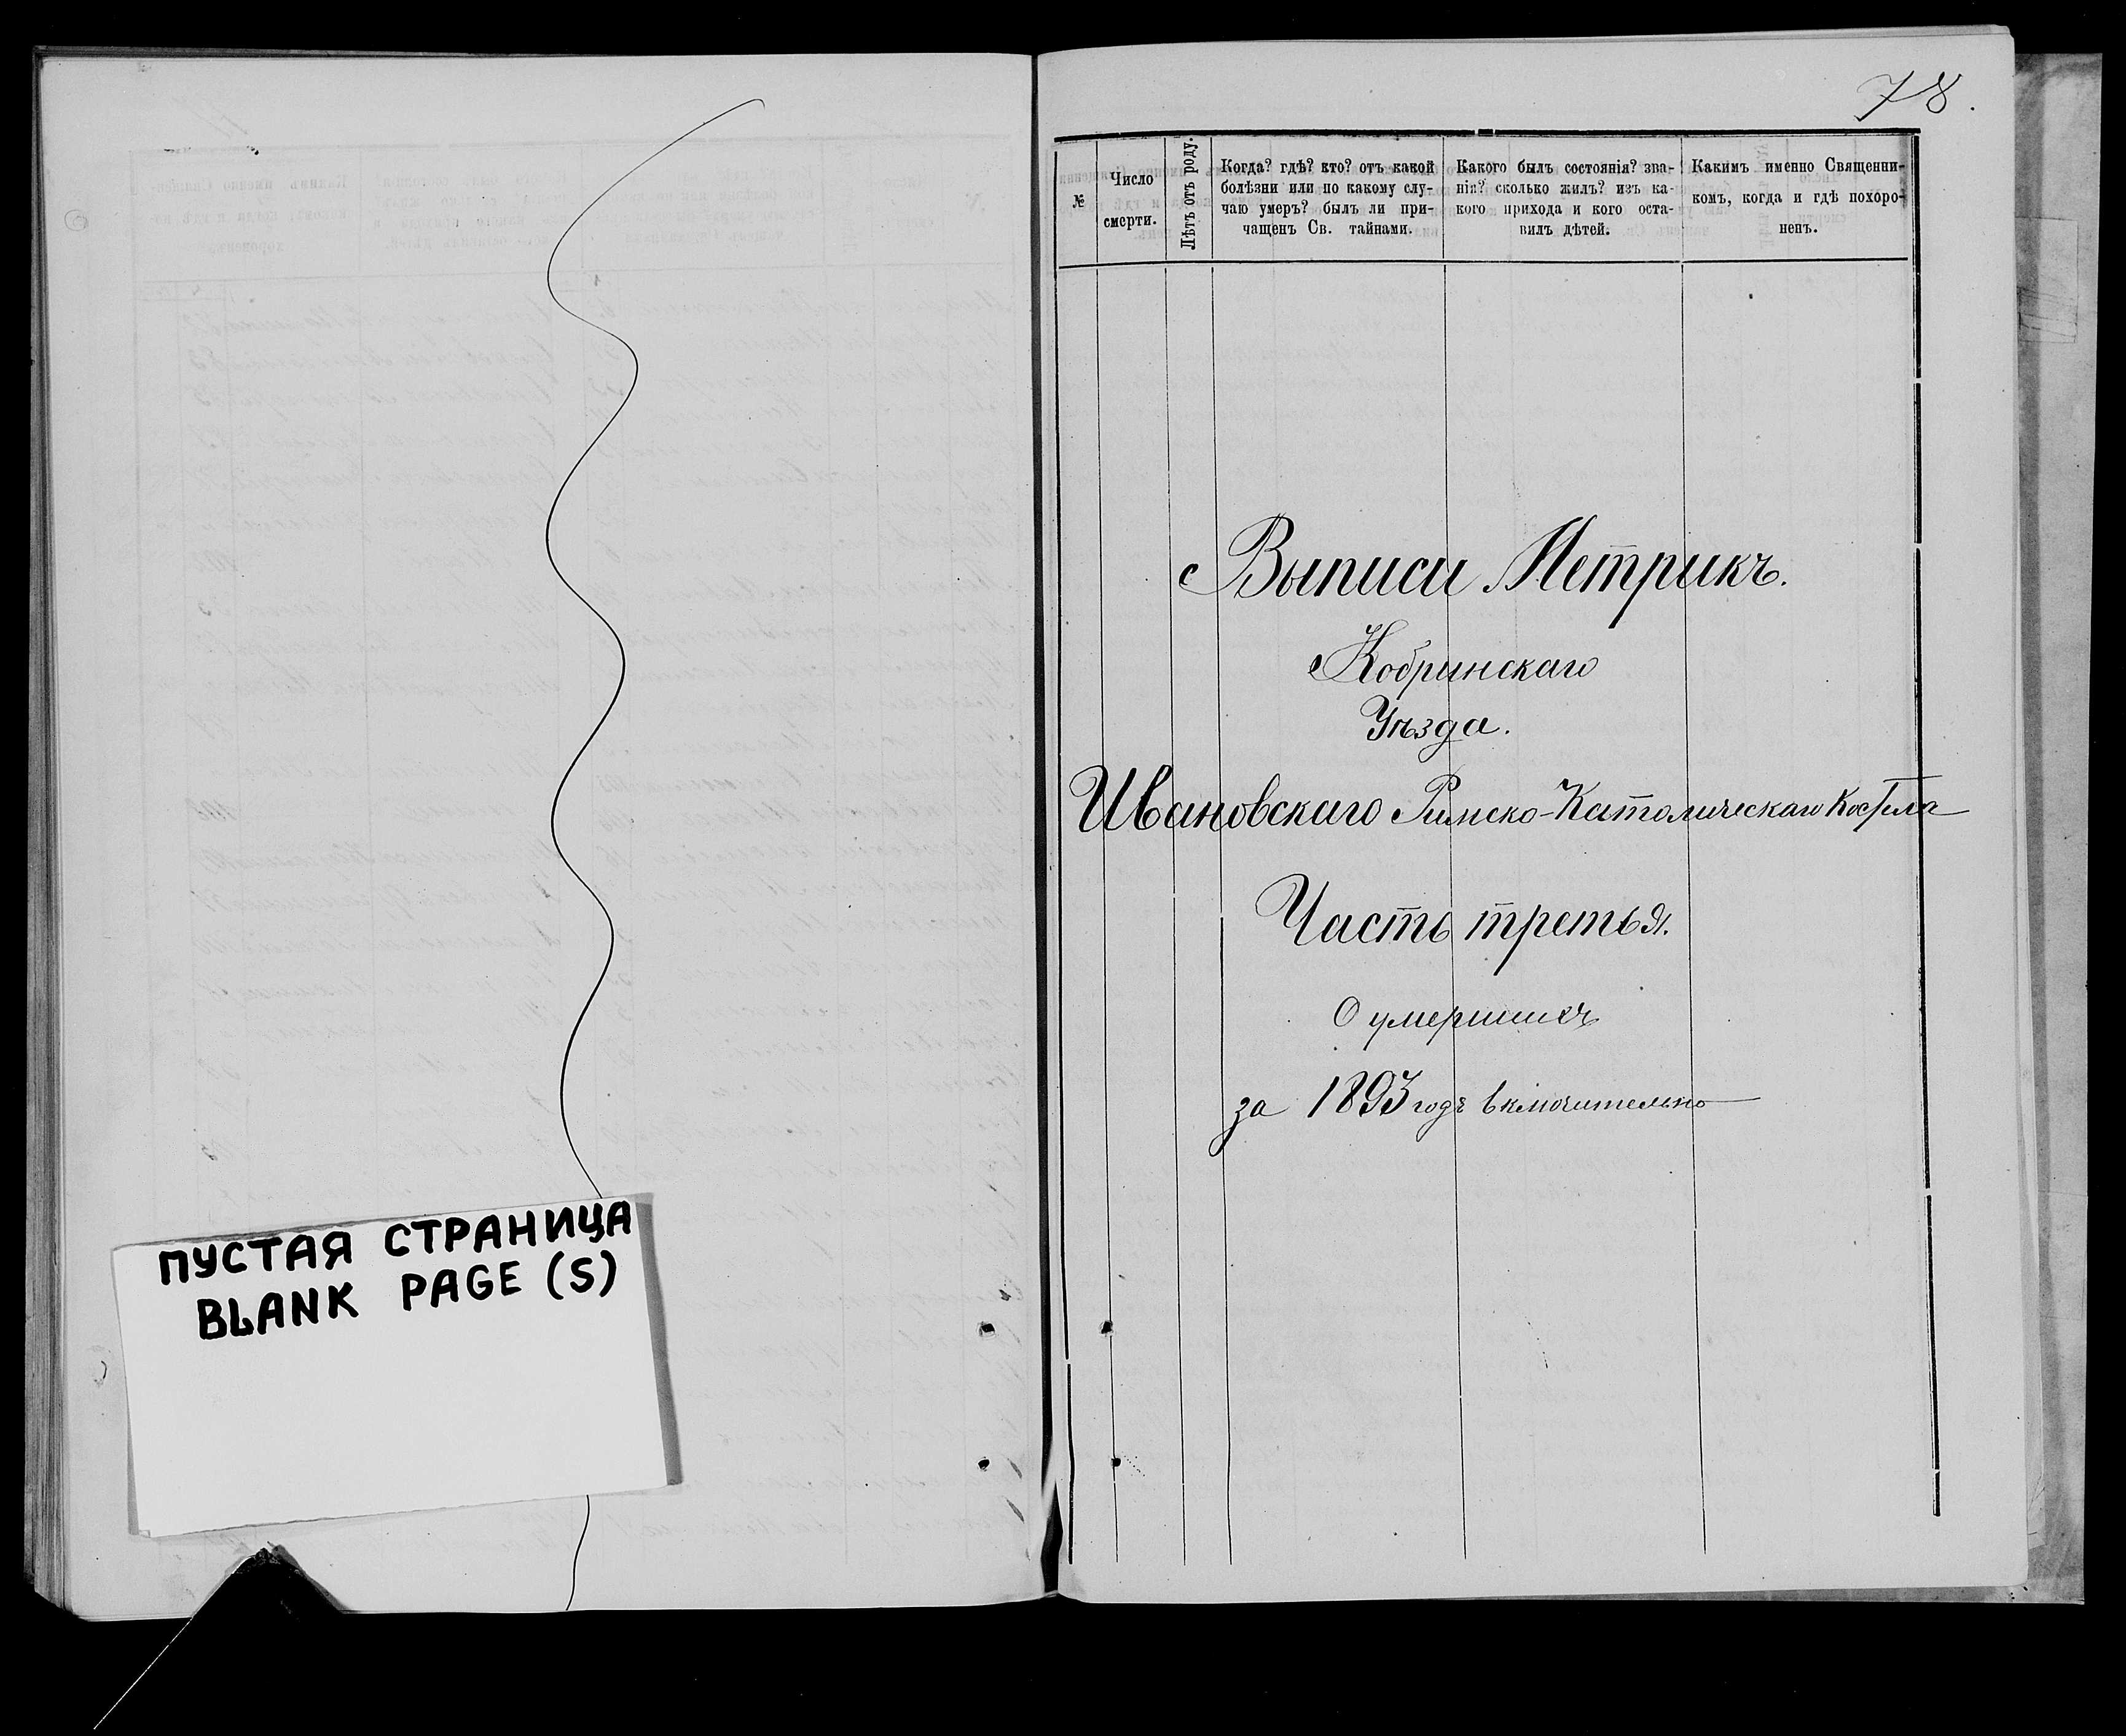 ПУСТАЯ СТРАНИЦА
BLANK PAGE (S)
78.
№
Число
смерти.
Лѣтъ отъ роду.
Когда? гдѣ? кто? отъ какой
болѣзни или по какому слу-
чаю умеръ? былъ ли при-
чащенъ Св. тайнами.
Какого былъ состоянія? зва-
нія? сколько жилъ? изъ ка-
кого прихода и кого оста-
вилъ дѣтей.
Какимъ именно Священни-
комъ, когда и гдѣ похоро-
ненъ.
Выписи Метрикъ.
Кобринскаго
Уѣзда.
Ивановскаго Римско-Католическаго Костела
Часть третья.
О умершихъ
за 1893 годъ включительно